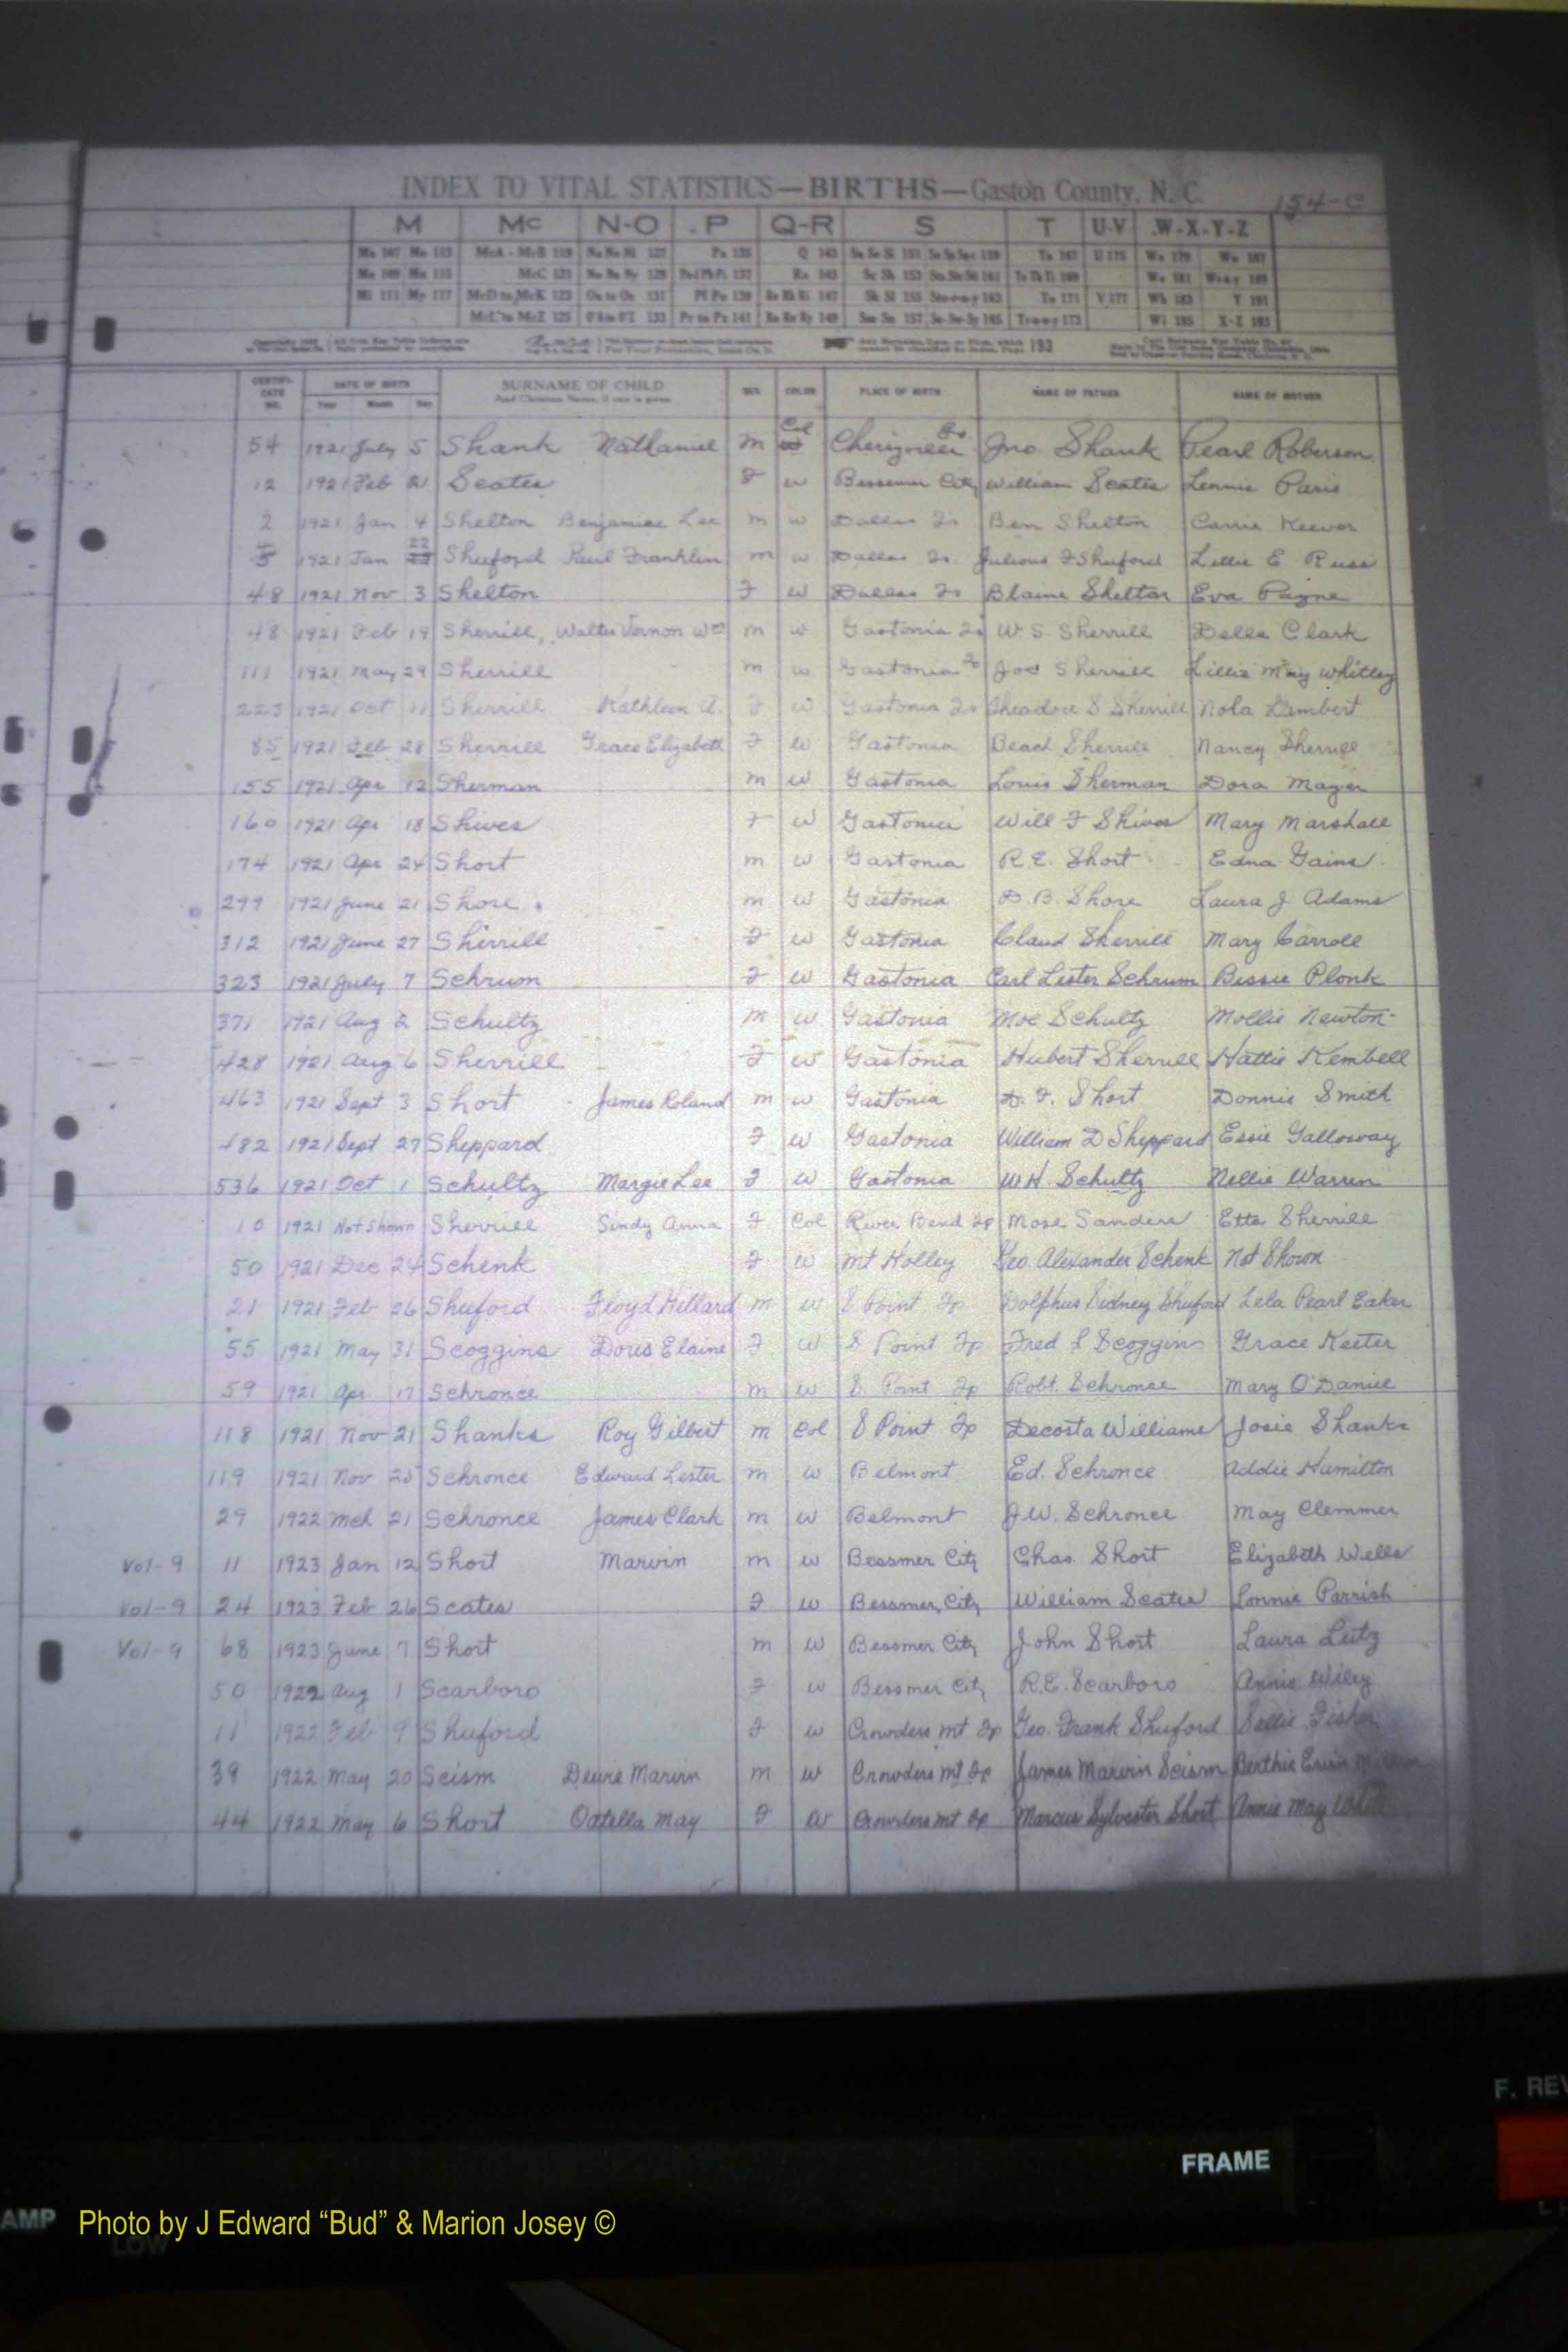 INDEX TO VITAL STATISTICS—BIRTHS—Gaston County, N. C. 154-C
M Mc N-O P Q-R S T U-V W-X-Y-Z
CERTIFI-CATE NO. DATE OF BIRTH Year Month Day SURNAME OF CHILD And Christian Name, if one is given SEX COLOR PLACE OF BIRTH NAME OF FATHER NAME OF MOTHER
54 1921 July 5 Shank Nathaniel m Col Jno. Shank Pearl Roberson
12 1921 Feb 21 Scates F w Bessemer City William Scates Lennie Paris
2 1921 Jan 4 Shelton Lee m w Dallas Ben Shelton Carrie Keever
5 1921 Jan 22 Shuford Paul Franklin m w Dallas Julious F Shuford Lillie E Russ
48 1921 Nov 3 Shelton F w Dallas Blaine Shelton Eva Payne
48 1921 Feb 19 Sherrill, Walter Vernon Wm m w Gastonia W. S. Sherrill Della Clark
111 1921 May 29 Sherrill m w Gastonia Joe Sherrill Lillie May Whitley
223 1921 Oct 11 Sherrill Kathleen A. F w Gastonia Theadore S Sherrill Nola Lambert
85 1921 Feb 28 Sherrill Grace Elizabeth F w Gastonia Beach Sherrill Nancy Sherrill
155 1921 Apr 12 Sherman m w Gastonia Louis Sherman Dora Mayer
160 1921 Apr 18 Shives F w Gastonia Will F Shives Mary Marshall
174 1921 Apr 24 Short m w Gastonia R. E. Short Edna Gains
299 1921 June 21 Shore m w Gastonia D. B. Shore Laura J Adams
312 1921 June 27 Sherrill F w Gastonia Claud Sherrill Mary Carroll
323 1921 July 7 Schrum F w Gastonia Carl Lester Schrum Bessie Plonk
371 1921 Aug 2 Schultz m w Gastonia Moe Schultz Mollie Newton
428 1921 Aug 6 Sherrill F w Gastonia Hubert Sherrill Hattie Kembell
463 1921 Sept 3 Short James Roland m w Gastonia D. F. Short Donnie Smith
482 1921 Sept 27 Sheppard F w Gastonia William D Sheppard Essie Galloway
536 1921 Oct 1 Schultz Margie Lee F w Gastonia W.H. Schultz Nellie Warren
10 1921 Not Shown Sherrill Sindy Anna F Col River Bend Tp Mose Sanders Etta Sherrill
50 1921 Dec 24 Schenk F w Mt Holley Geo. Alexander Schenk Not Shown
21 1921 Feb 26 Shuford Floyd Hillard m w S Point Tp Dolphus Sidney Shuford Lela Pearl Eaker
55 1921 May 31 Scoggins Doris Elaine F w S Point Tp Fred L Scoggins Grace Keeter
59 1921 Apr 17 Schronce m w S. Point Tp Robt. Schronce Mary O'Daniel
118 1921 Nov 21 Shanks Roy Gilbert m Col S Point Tp Decosta Williams Josie Shanks
119 1921 Nov 25 Schronce Edward Lester m w Belmont Ed. Schronce Addie Hamilton
29 1922 Mch 21 Schronce James Clark m w Belmont J.W. Schronce May Clemmer
Vol-9 11 1923 Jan 12 Short Marvin m w Bessmer City Chas. Short Elizabeth Wells
Vol-9 24 1923 Feb 26 Scates F w Bessmer City William Scates Lonnie Parrish
Vol-9 68 1923 June 7 Short m w Bessmer City John Short Laura Lutz
50 1922 Aug 1 Scarboro F w Bessmer City R.E. Scarboro Annie Wiley
11 1922 Feb 9 Shuford F w Crowders Mt Tp Geo. Frank Shuford Sallie Fisher
39 1922 May 20 Scism Dewie Marvin m w Crowders Mt Tp James Marvin Scism Berthie
44 1922 May 6 Short Oatella May F w Crowders Mt Tp Marcus Sylvester Short Annie May
F. REV
FRAME
AMP
LOW
Photo by J Edward “Bud” & Marion Josey ©